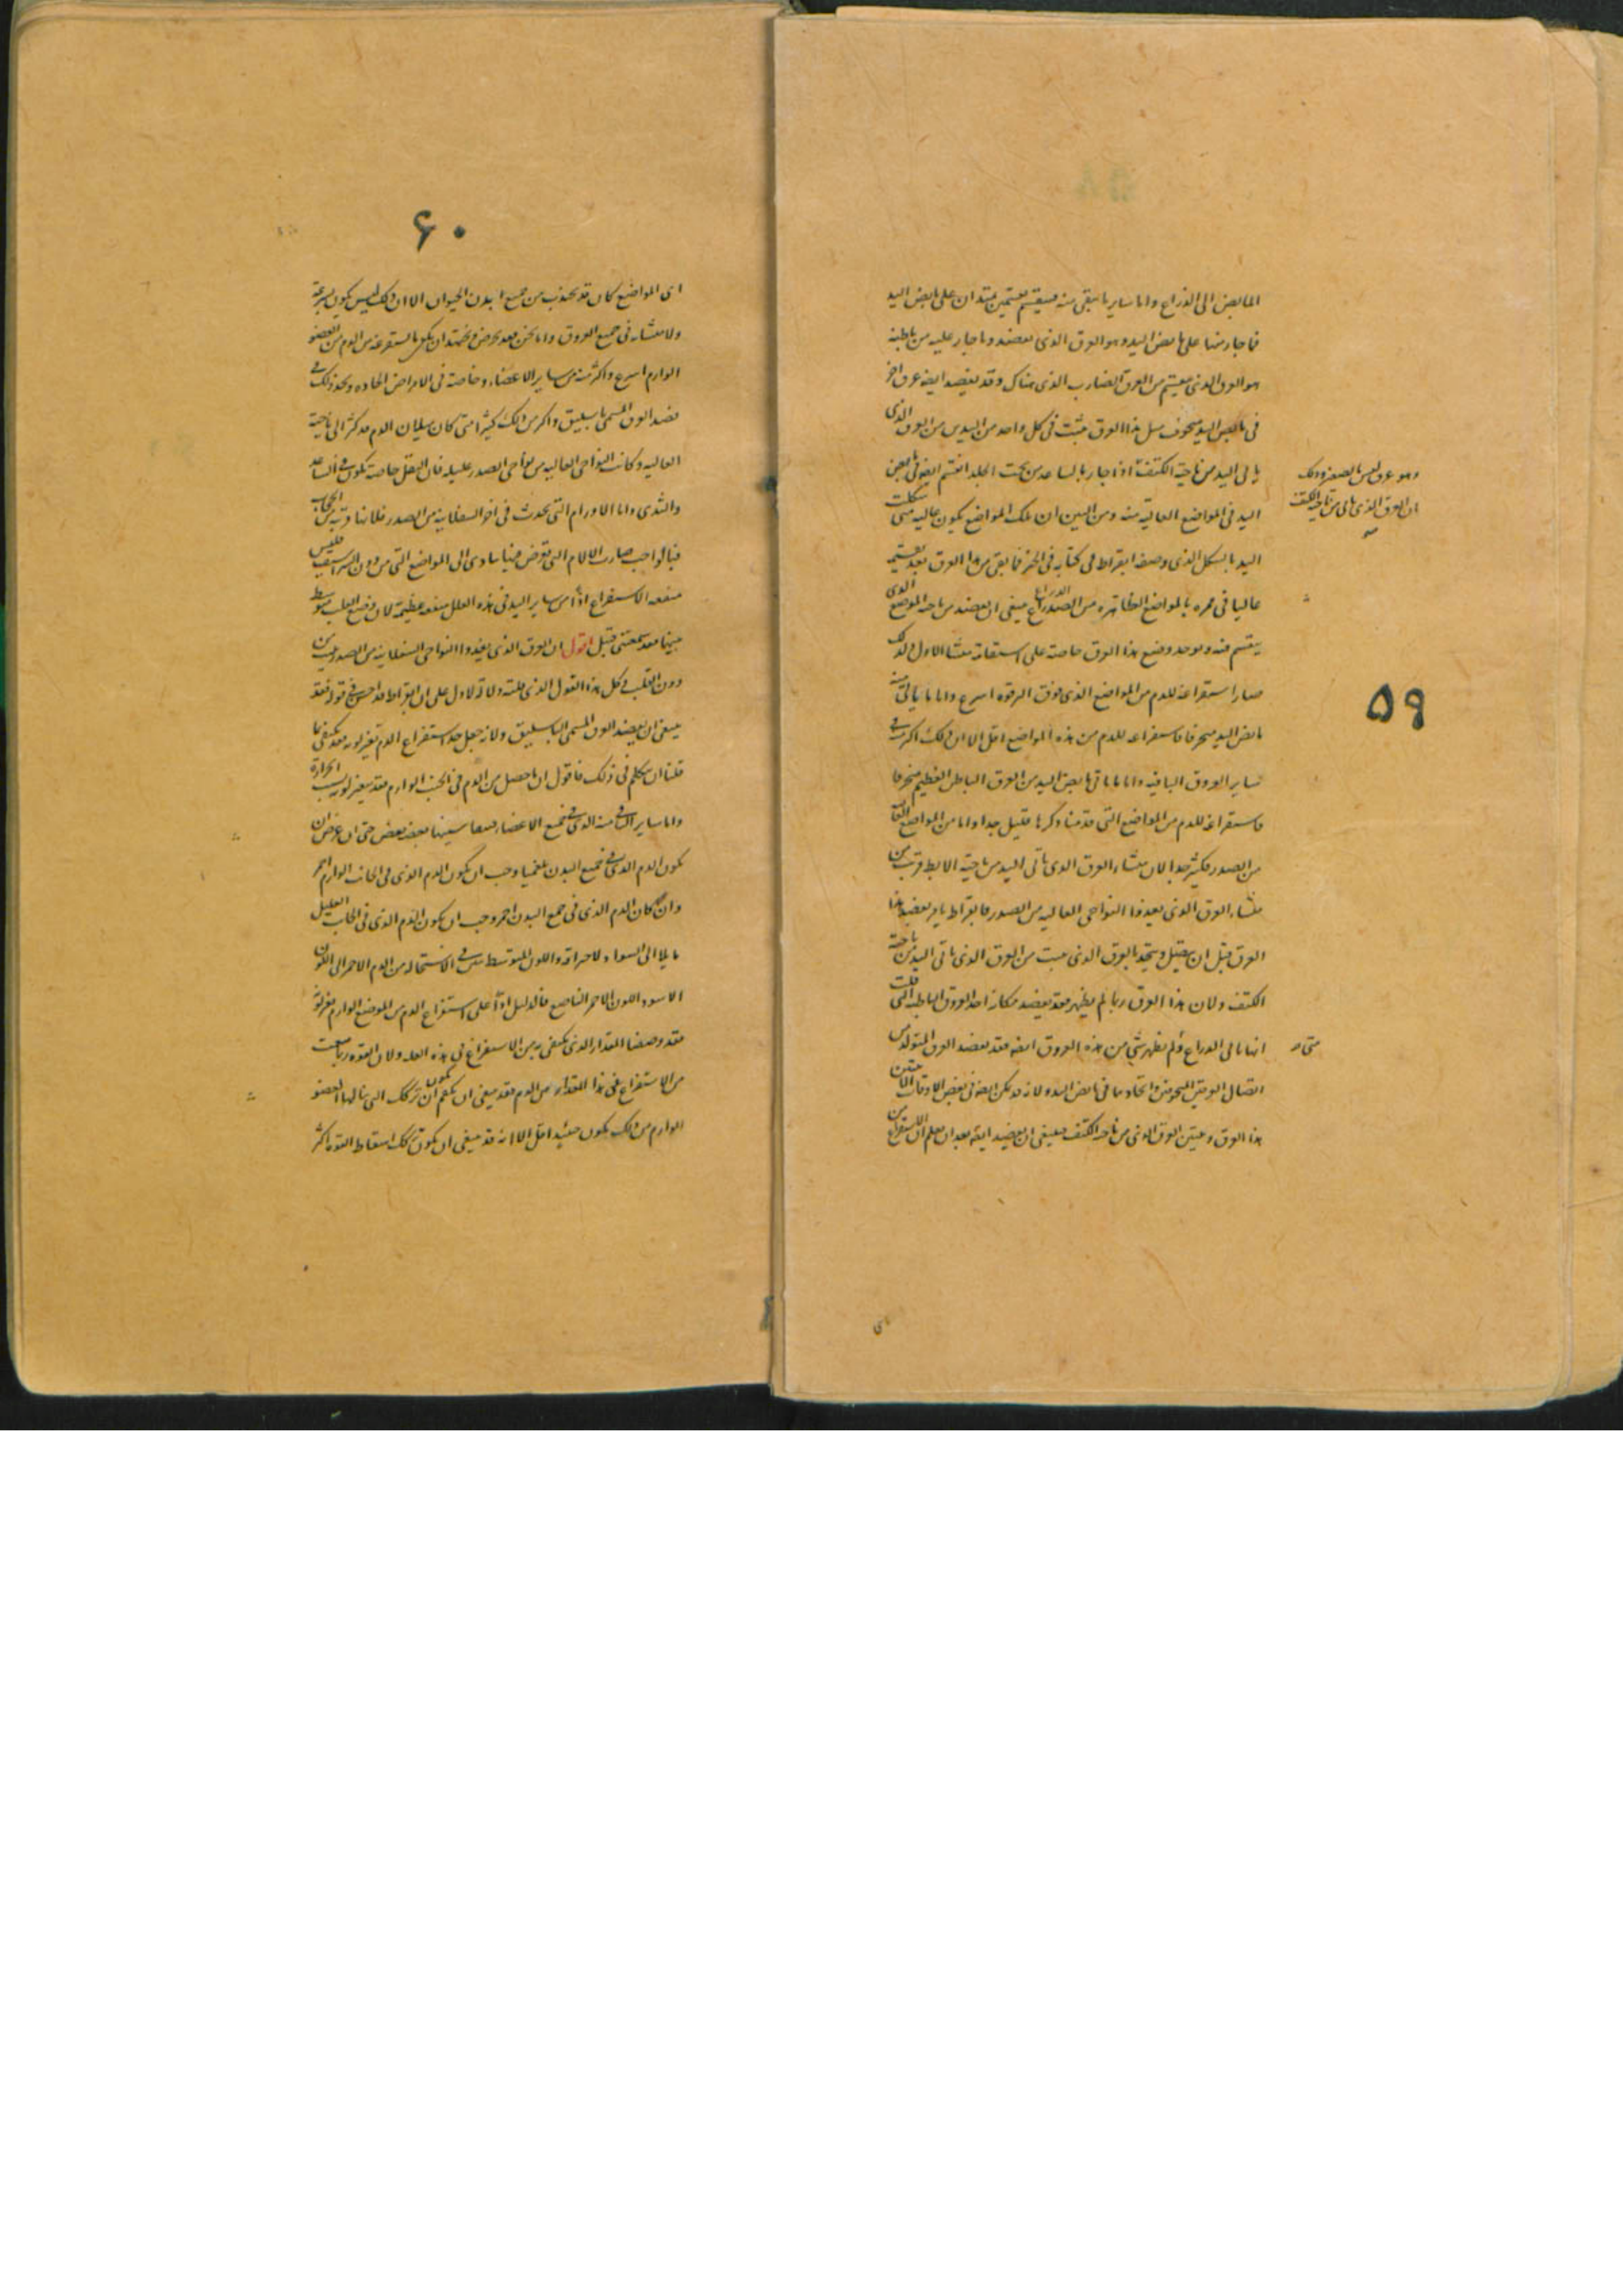 المابض الى الذراع واما ساير ما تبقى منه فينقسم بقسمين يمتدان على مابض اليد
فما جاز منها على مابض اليد وهو العرق الذى يفصد وما جاز عليه من باطنه
هو العرق الذى يقسم من العرق الضارب الذى هناك وقد يفصد ايضا عرق اخر
فى مابض اليد منحرف مثل هذا العرق ينبت فى كل واحد من اليدين من العرق الذى
ياتى اليد من ناحية الكتف اذا جاز بالساعد من تحت الجلد انقسم ايضا فى مابض
وهو عرق ليس بالصغير وذلك
ان العرق الذى ياتى من ناحية الكتف
اليد فى المواضع العالية منه ومن البين ان تلك المواضع يكون عاليه متى شكلت
اليد بالشكل الذى وصفه ابقراط فى كتابه فى الجبر فما بقى من هذا العرق بعد تقسيمه
عاليا فى ممره بالمواضع الظاهرة من الصدر ينبغى ان يفصد من ناحية الموضع الذى
ينقسم منه ويوجد وضع هذا العرق خاصة على استقامة منشا الاول ولذلك
صار استفراغه للدم من المواضع الذى فوق الترقوه اسرع واما ما ياتى
مابض اليد منحرفا فاستفراغه للدم من هذه المواضع اقل الا ان ذلك اكثر
٥٩
ساير العروق الباقيه واما ما ياتى مابض اليد من العرق الباطن العظيم منحرفا
فاستفراغه للدم من المواضع التى قدمنا ذكرها قليل جدا واما من المواضع
من الصدر فكثير جدا لان منشاء العرق الذى ياتى اليد من ناحية الابط قريب من
منشاء العرق الذى يغذوا النواحى العاليه من الصدر فابقراط يامر بفصد هذا
العرق قبل ان يتصل ويتحد بالعرق الذى ينبت من العرق الذى ياتى اليد من ناحية
الكتف ولان هذا العرق ربما لم يظهر فقد يفصد مكانه احد العروق الباطنه التى قلت
انها تاتى الذراع ولم يظهر شى من هذه العروق ايضا فقد يفصد العرق المتولد من
متى
اتصال العرقين المنحرفين واتحادهما فى مابض اليد ولانه قد يمكن ايضا فى بعض الاوقات
هذا العرق وبين العرق الذى من ناحية الكتف فينبغى ان يفصد ايضا بعد ان يعلم ان الاستفراغ من
اى
٦٠
اى المواضع كان قد يجذب من جميع ابدن الحيوان الا ان ذلك ليس يكون بسرعة
ولا متشابه فى جميع العروق واما نحن فقد نحرص ونجتهد ان يكون ما نستفرغه من الدم من العضو
الوارم اسرع واكثر منه من ساير الاعضاء وخاصة فى الامراض الحاده ونحو ذلك
فصد العرق المسمى باسيليق واكثر من ذلك كثيرا متى كان سيلان الدم قد كثر الى ناحية
العاليه وكانت النواحى العاليه من نواحى الصدر عليله فان الثقل خاصة يكون فى الساعد
والثدى واما الاورام التى تحدث فى اخر السفلانيه من الصدر فلانها قريبه من الحجاب
فبالواجب صارت الالام التى تعرض فيها يتادى الى المواضع التى من دون الشراسيف فليس
منفعه الاستفراغ اذًا من ساير اليد فى هذه العلل منفعه عظيمة لان وضع القلب متوسط
بينهما فقد سمعتنى قبل اقول ان العرق الذى يغذوا النواحى السفلانيه من الصدر
دون القلب فكل هذا القول الذى قلته دلالة لاول على ان ابقراط قد احسن فى قوله فقد
ينبغى ان يفصد العرق المسمى الباسليق ولانه جعل حد استفراغ الدم تغير لونه فقد
قلنا ان نتكلم فى ذلك فاقول ان ما حصل من الدم فى الجنب الوارم فقد يتغير لونه بسبب الحرارة
واما ساير الدم الذى فى جميع الاعضاء فيها بعضه بعض حتى ان عرض ان
يكون الدم الذى فى جميع البدن بلغميا وجب ان يكون الدم الذى فى الجانب الوارم احمر
وان كان الدم الذى فى جميع البدن احمر وجب ان يكون الدم الذى فى الجانب العليل
مايلا الى السواد لاحتراقه واللون المتوسط فى الاستحاله من الدم الاحمر الى اللون
الاسود اللون الاحمر الناصع فالدليل اذًا على استفراغ الدم من الموضع الوارم تغير لونه
فقد وصفنا المقدار الذى يكتفى به من الاستفراغ فى هذه العله ولان القوه ربما ضعفت
من الاستفراغ على هذا المقدار من الدم فقد ينبغى ان يعلم ان تركك التى ينالها العضو
الوارم من ذلك يكون حينئذ اقل الا انه قد ينبغى ان يكون اسقاط القوه اكثر